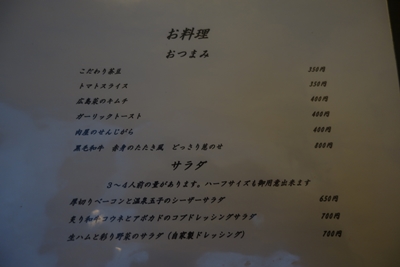 お料理
おつまみ
こだわり枝豆 350円
トマトスライス 350円
広島菜のキムチ 400円
ガーリックトースト 400円
肉屋のせんじがら 400円
黒毛和牛 赤身のたたき風 どっさり葱のせ 800円
サラダ
3～4人前の量があります。ハーフサイズも御用意出来ます
厚切りベーコンと温泉玉子のシーザーサラダ 650円
炙り和牛コウネとアボカドのコブドレッシングサラダ 700円
生ハムと彩り野菜のサラダ（自家製ドレッシング） 700円